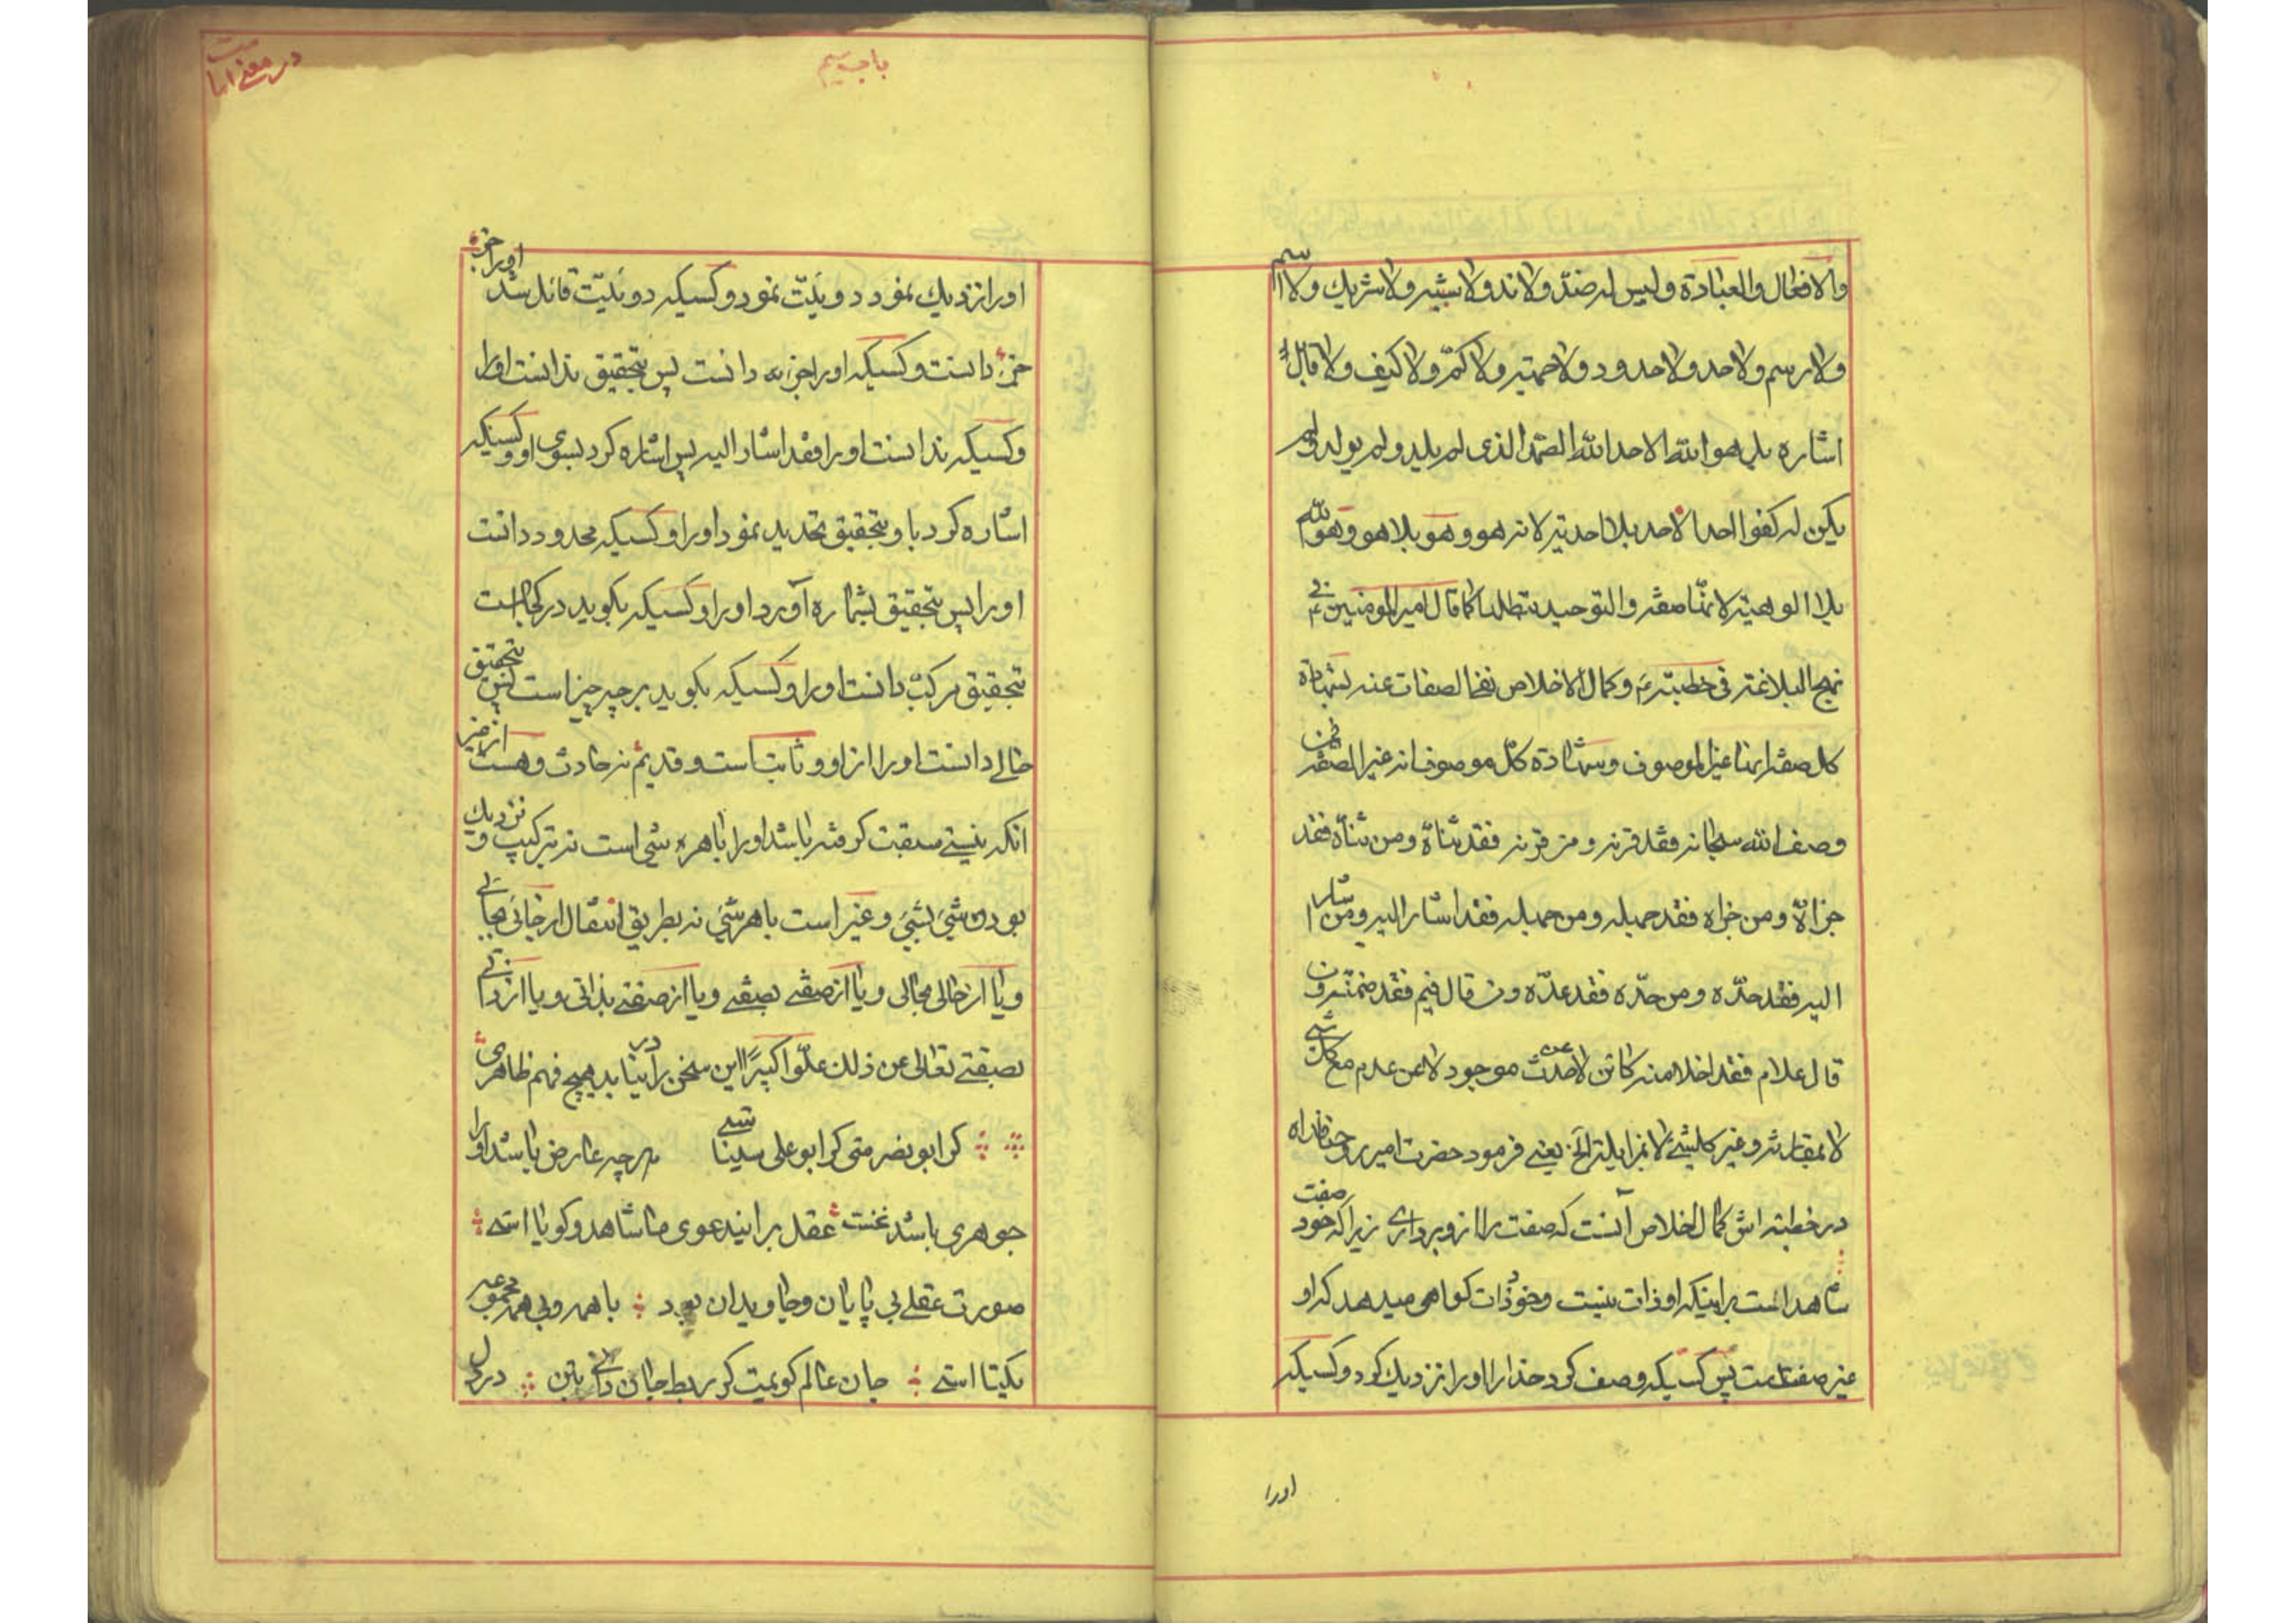 والافعال والعبادة وليس له ضدّ ولا ند ولا شبيه ولا شريك ولا اسم
ولا رسم ولا حد ولا حدود ولا حيثية ولا كمّ ولا كيف ولا قابل
اشاره بل هو الله الاحد الله الصمد الذى لم يلد ولم يولد ولم
يكن له كفوا احد الاحد بلا احدية لانه هو وهو بلا هو وهو الله
بلا الوهية لانها صفة والتوحيد كما قال امير المومنين ع في
نهج البلاغة في خطبته ع وكمال الاخلاص نفى الصفات عنه بشهادة
كل صفة انها غير الموصوف وشهادة كل موصوف انه غير الصفة فمن
وصف الله سبحانه فقد قرنه ومن قرنه فقد ثناه ومن ثناه فقد
جزاه ومن جزاه فقد جهله ومن جهله فقد اشار اليه ومن اشار
اليه فقد حدّه ومن حدّه فقد عدّه ومن قال فيم فقد ضمنه ومن
قال علام فقد اخلا منه كائن لا عن حدث موجود لا عن عدم مع كل شئ
لا بمقارنة وغير كل شئ لا بمزايلة الخ يعنے فرمود حضرت امير روحنا فداه
در خطبه اش كمال اخلاص آنست كه صفت را از و بردارے زيرا كه خود صفت
شاهد است بر اينكه او ذات نيست وخود ذات كواهى ميدهد كه او
غير صفت است پس كسيكه وصف كرد خدا را او را نزديك كرد وكسيكه
اورا
باب سيم
در معنے امامت
او را نزديك نمود دوئيّت نمود وكسيكه دوئيّت قائل شد او را جزء
جزء دانست وكسيكه او را جزء دانست پس بتحقيق ندانست او را
وكسيكه ندانست او را فقد اشار اليه پس اشاره كرد بسوى او وكسيكه
اشاره كرد باو بتحقيق تحديد نمود او را وكسيكه محدود دانست
او را پس بتحقيق بشماره آورد او را وكسيكه بكويد در كجا است
بتحقيق مركب دانست او را وكسيكه بكويد بر چه چيز است پس بتحقيق
خالے دانست او را از او و ثابت است و قديم نه حادث وهست از غير
انكه نيستے سبقت كرفته باشد او را با هر شى است نه بتركيب و نزديك
بودن شئ بشئ و غير است با هر شئ نه بطريق انتقال از جائى بجائے
ويا از حالى بحالى ويا از صفتے بصفتے ويا از صفتے بذاتى ويا از ذاتے
بصفتے تعالى عن ذلك علوّا كبيرًا اين سخن را در نيابد هيچ فهم ظاهرى
كر ابو نصرستى كر ابو على سيناستے هر چه عارض باشد او را
جوهرى بايد نخست عقل بر اين دعوى ما شاهد و كوياا استے
صورت عقلے بى پايان وجاويدان بود با همه و بى همه مجموعه
يكتا استے جان عالم كويمت كر ربط جان دانے بتن در دل